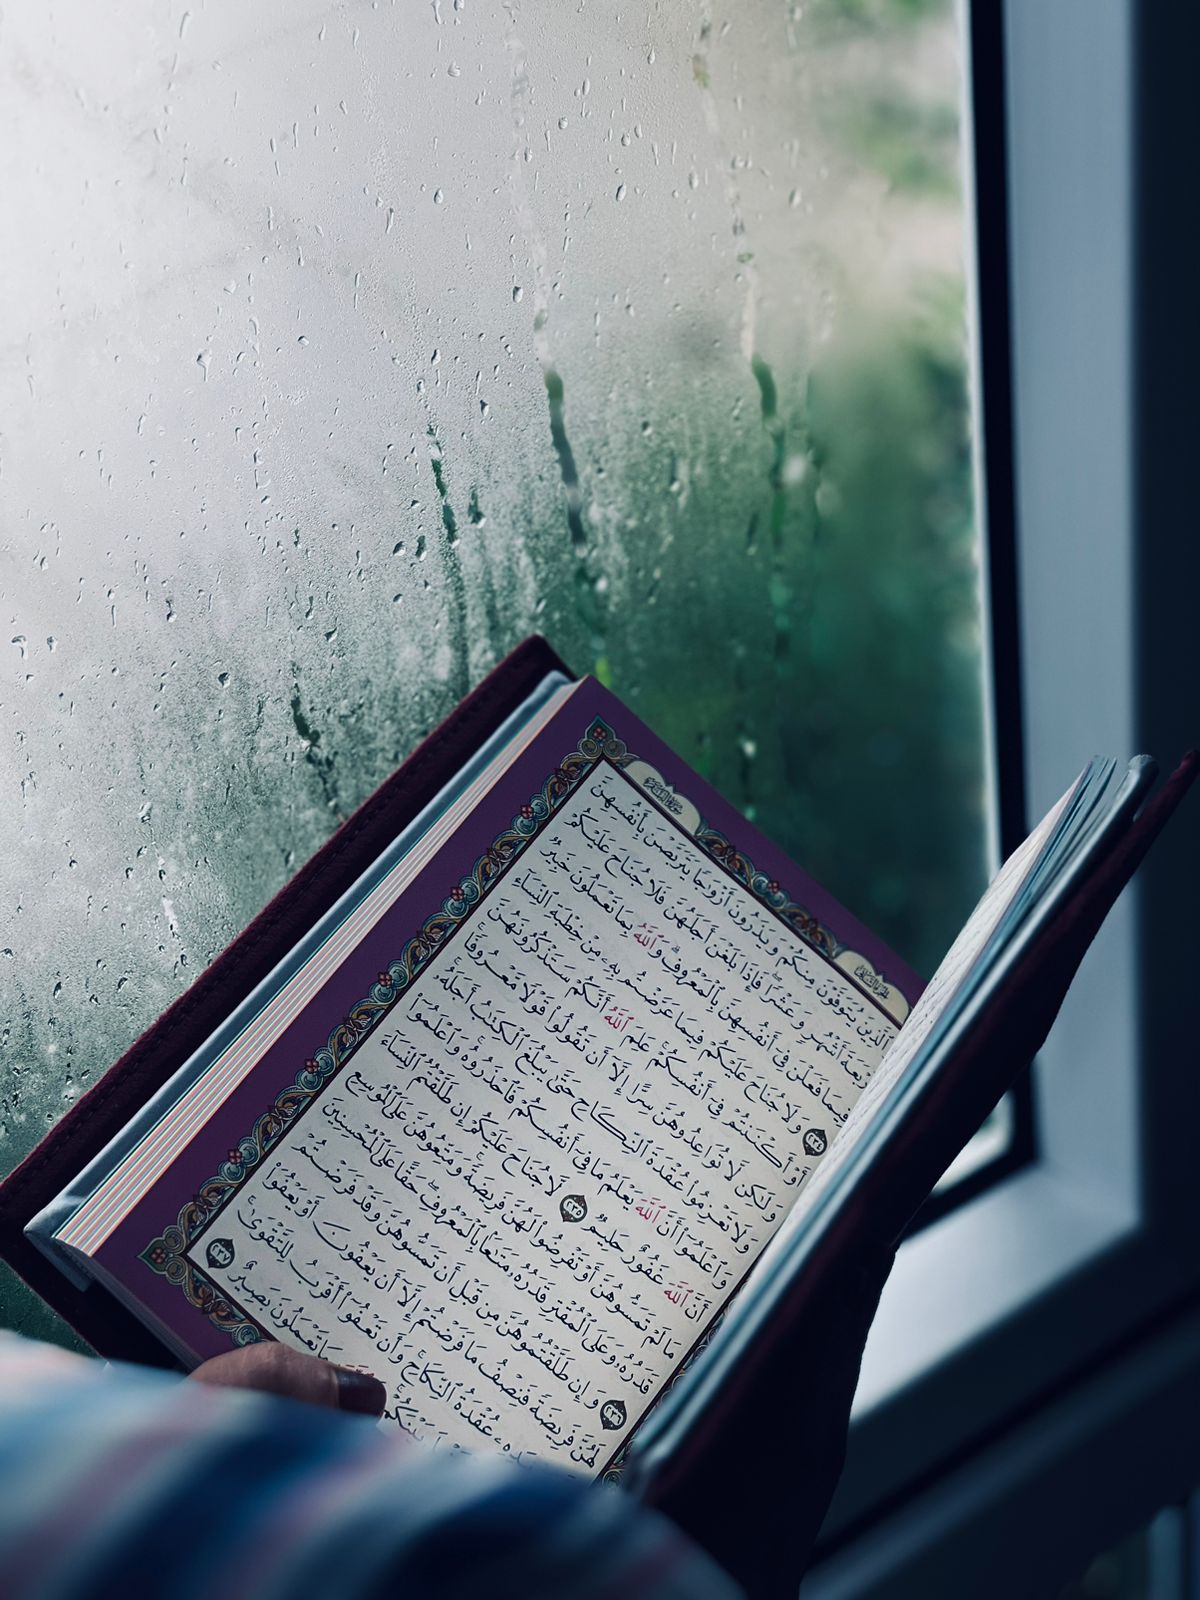 سورة البقرة
الجزء الثاني
وَٱلَّذِينَ يُتَوَفَّوْنَ مِنكُمْ وَيَذَرُونَ أَزْوَٰجًا يَتَرَبَّصْنَ بِأَنفُسِهِنَّ
أَرْبَعَةَ أَشْهُرٍ وَعَشْرًا ۖ فَإِذَا بَلَغْنَ أَجَلَهُنَّ فَلَا جُنَاحَ عَلَيْكُمْ
فِيمَا فَعَلْنَ فِىٓ أَنفُسِهِنَّ بِٱلْمَعْرُوفِ ۗ وَٱللَّهُ بِمَا تَعْمَلُونَ خَبِيرٌ
٢٣٤ وَلَا جُنَاحَ عَلَيْكُمْ فِيمَا عَرَّضْتُم بِهِۦ مِنْ خِطْبَةِ ٱلنِّسَآءِ
أَوْ أَكْنَنتُمْ فِىٓ أَنفُسِكُمْ ۚ عَلِمَ ٱللَّهُ أَنَّكُمْ سَتَذْكُرُونَهُنَّ
وَلَٰكِن لَّا تُوَاعِدُوهُنَّ سِرًّا إِلَّآ أَن تَقُولُوا۟ قَوْلًا مَّعْرُوفًا ۚ
وَلَا تَعْزِمُوا۟ عُقْدَةَ ٱلنِّكَاحِ حَتَّىٰ يَبْلُغَ ٱلْكِتَٰبُ أَجَلَهُۥ ۚ
وَٱعْلَمُوٓا۟ أَنَّ ٱللَّهَ يَعْلَمُ مَا فِىٓ أَنفُسِكُمْ فَٱحْذَرُوهُ ۚ وَٱعْلَمُوٓا۟
أَنَّ ٱللَّهَ غَفُورٌ حَلِيمٌ ٢٣٥ لَّا جُنَاحَ عَلَيْكُمْ إِن طَلَّقْتُمُ ٱلنِّسَآءَ
مَا لَمْ تَمَسُّوهُنَّ أَوْ تَفْرِضُوا۟ لَهُنَّ فَرِيضَةً ۚ وَمَتِّعُوهُنَّ عَلَى ٱلْمُوسِعِ
قَدَرُهُۥ وَعَلَى ٱلْمُقْتِرِ قَدَرُهُۥ مَتَٰعًۢا بِٱلْمَعْرُوفِ ۖ حَقًّا عَلَى ٱلْمُحْسِنِينَ
٢٣٦ وَإِن طَلَّقْتُمُوهُنَّ مِن قَبْلِ أَن تَمَسُّوهُنَّ وَقَدْ فَرَضْتُمْ
لَهُنَّ فَرِيضَةً فَنِصْفُ مَا فَرَضْتُمْ إِلَّآ أَن يَعْفُونَ أَوْ يَعْفُوَا۟
عُقْدَةُ ٱلنِّكَاحِ ۚ وَأَن تَعْفُوٓا۟ أَقْرَبُ لِلتَّقْوَىٰ ۚ
بَيْنَكُمْ ۚ بِمَا تَعْمَلُونَ بَصِيرٌ ٢٣٧